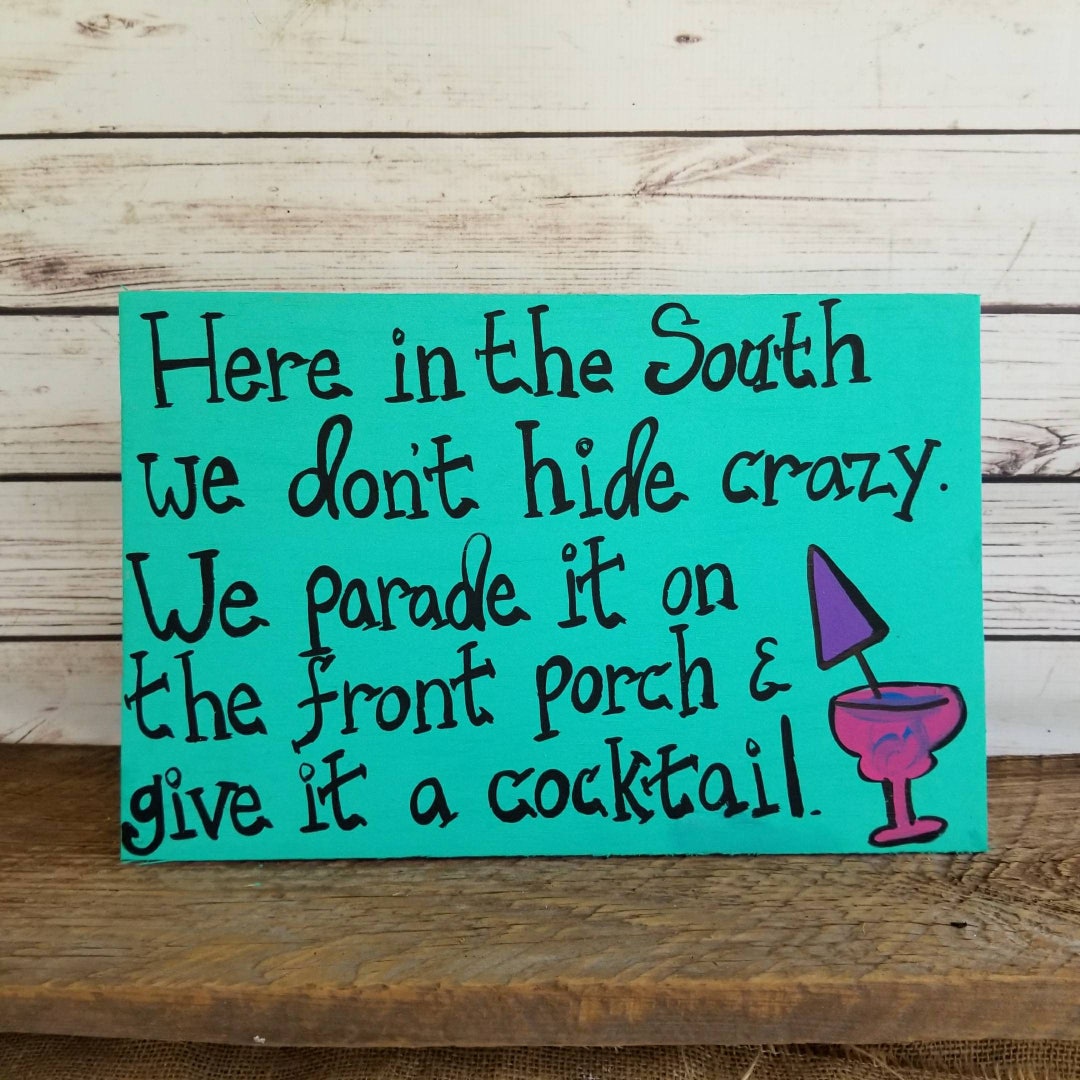 Here in the South
we don't hide crazy.
We parade it on
the front porch &
give it a cocktail.